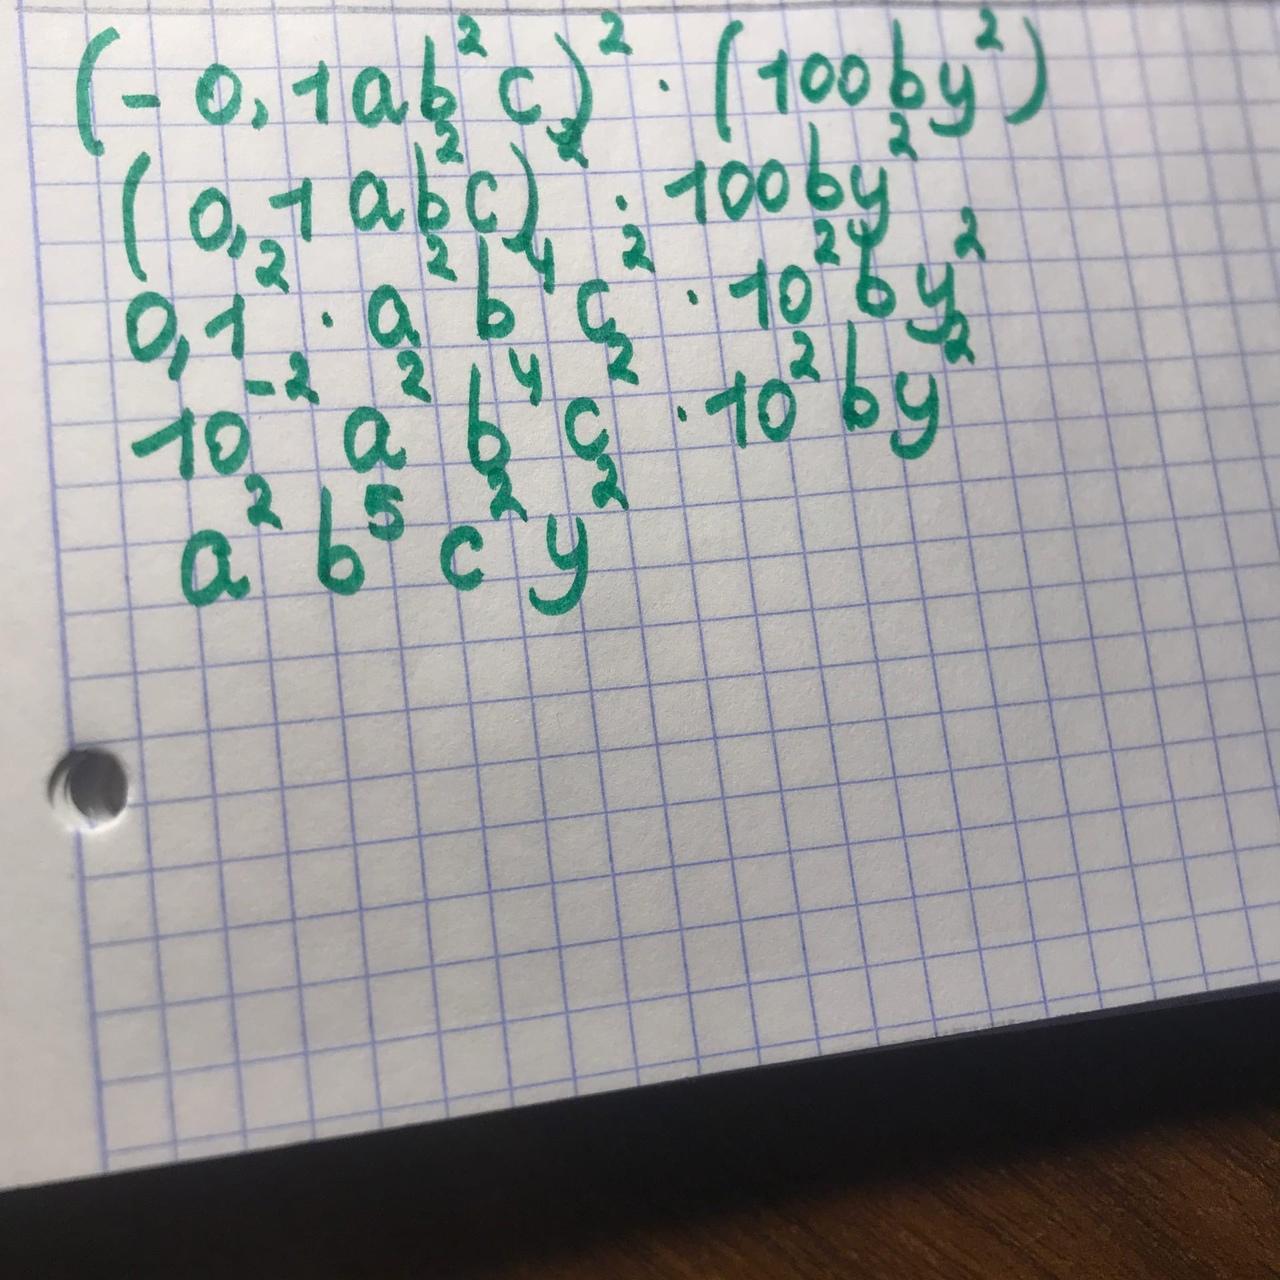 (-0,1ab²c)² · (100by²)
(0,1ab²c)² · 100by²
0,1² · a²b⁴c² · 10²by²
10⁻²a²b⁴c² · 10²by²
a²b⁵c²y²